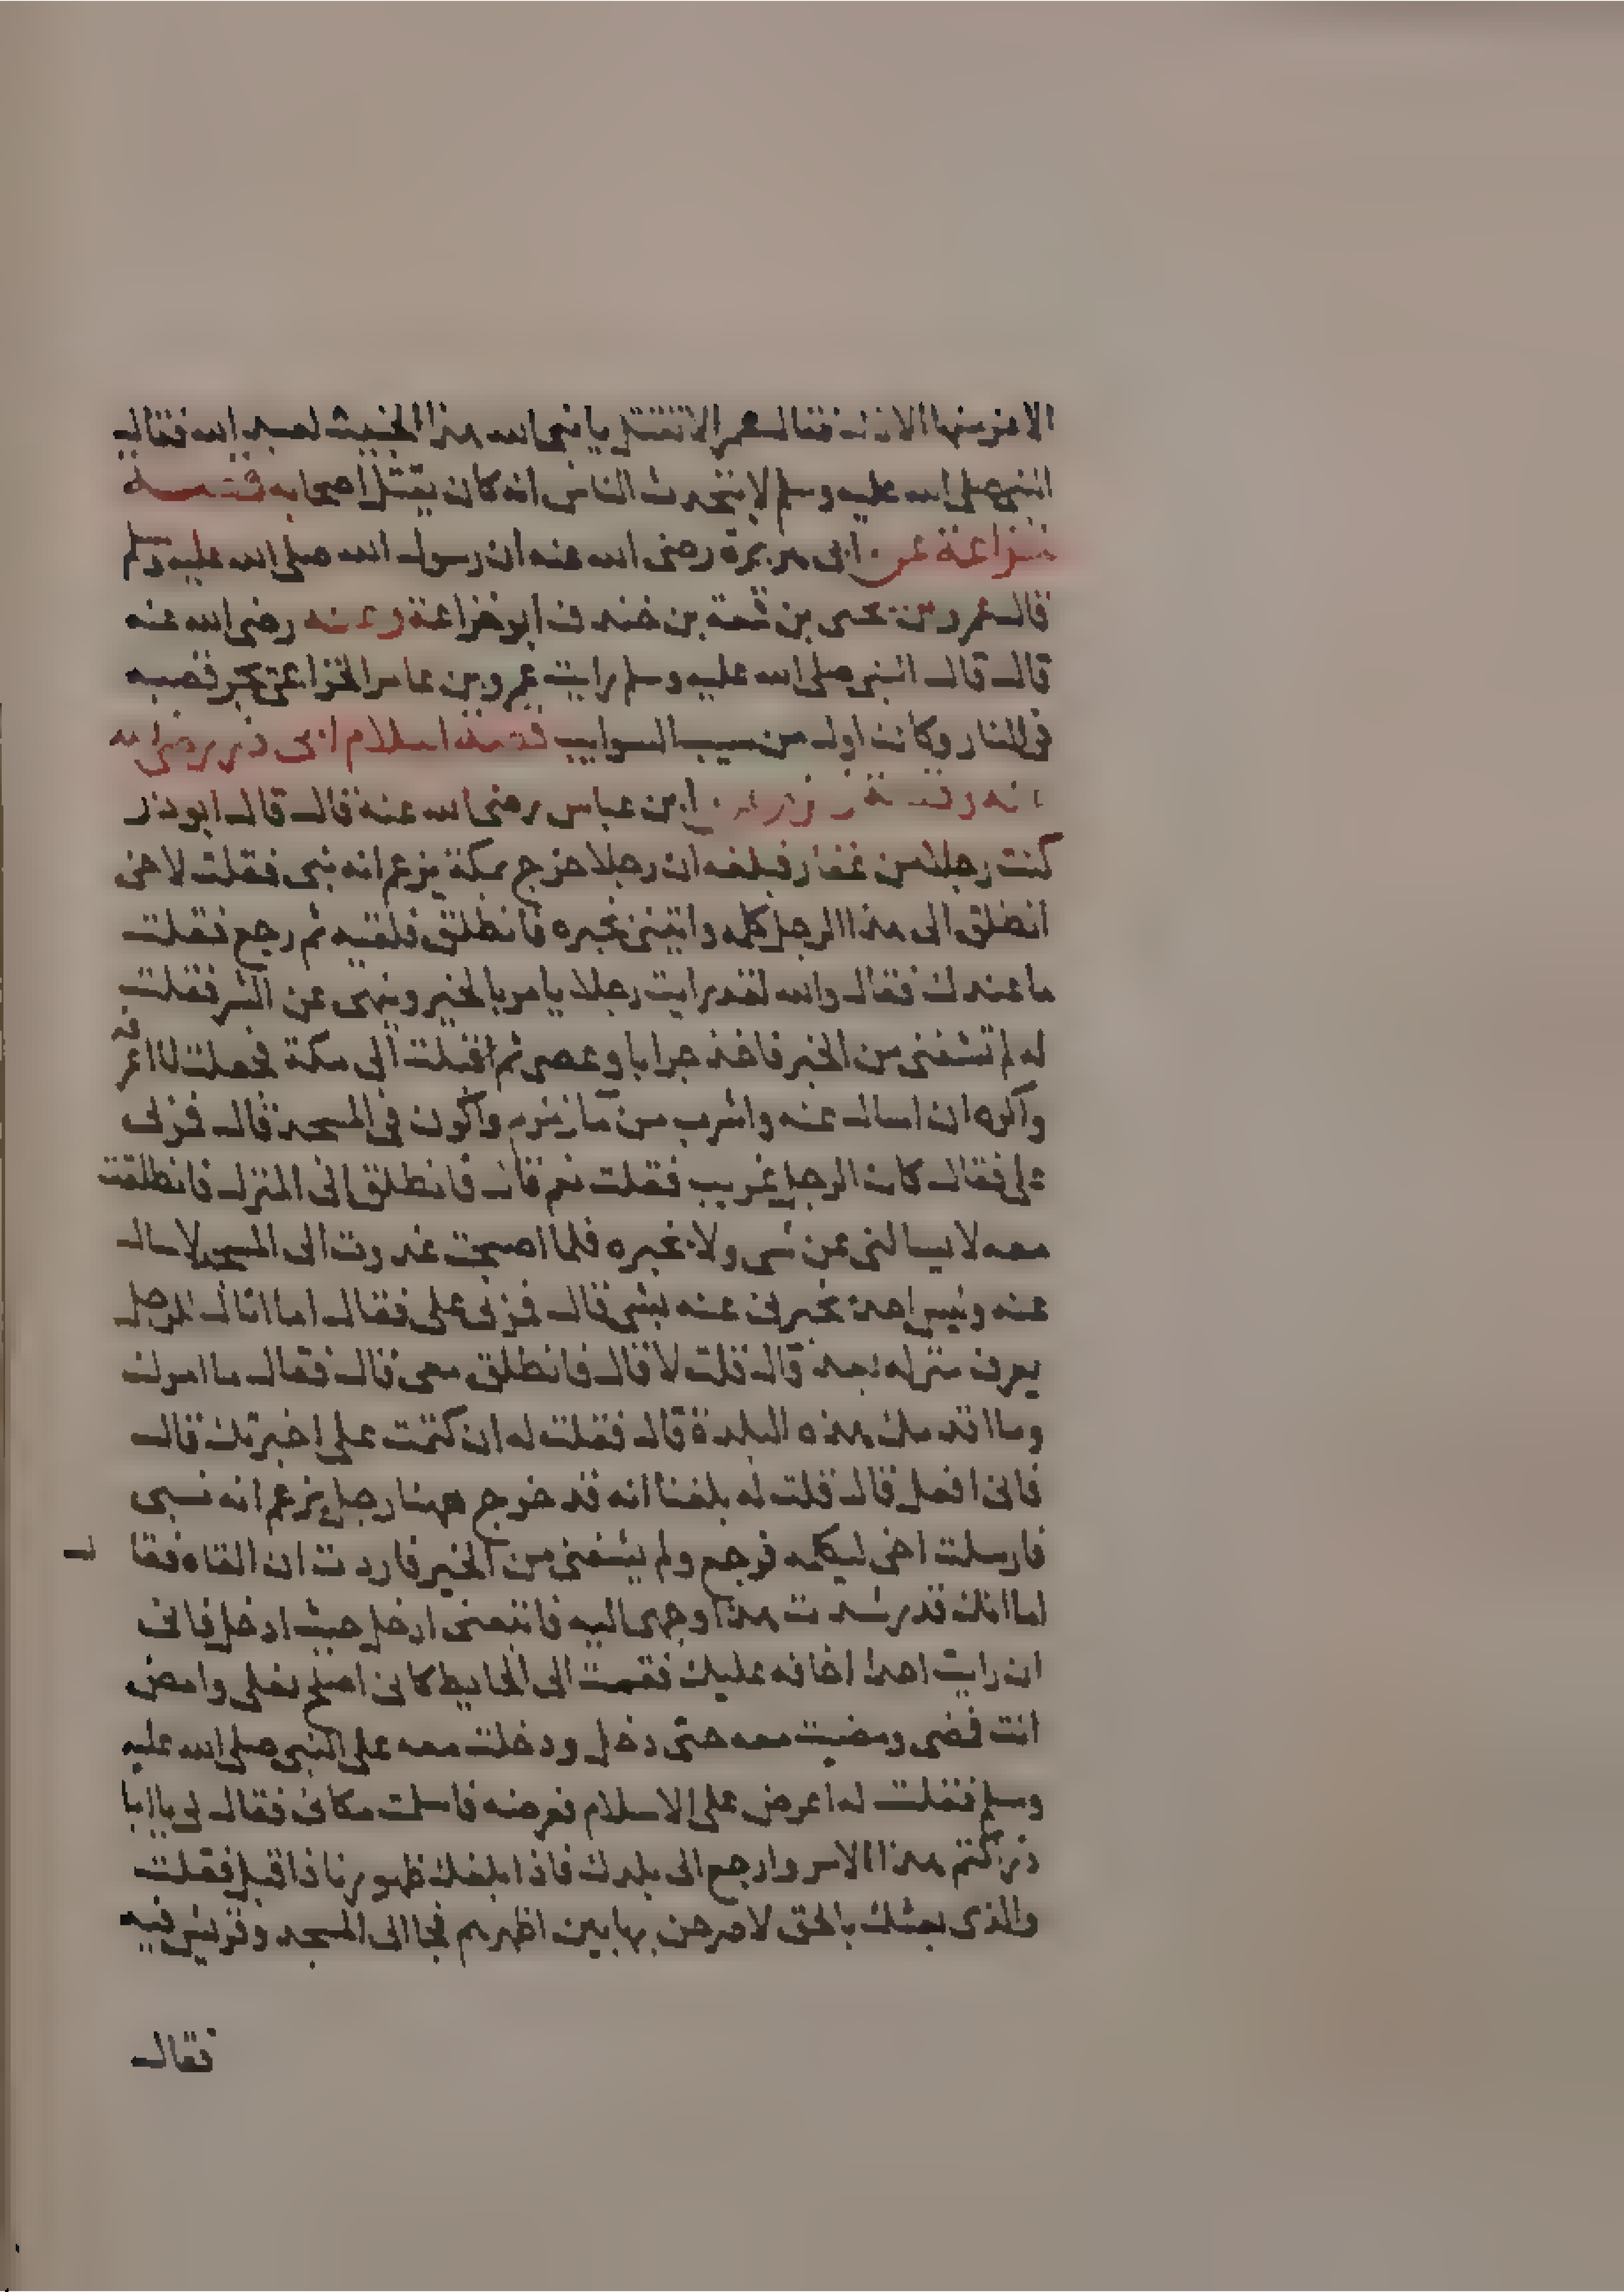 الاعز منها الاذل فقال عمر الا تقتل يا نبي الله هذا الخبيث لعبد الله فقال
النبي صلى الله عليه وسلم لا يتحدث الناس انه كان يقتل اصحابه قصة
خزاعة عن ابي هريرة رضي الله عنه ان رسول الله صلى الله عليه وسلم
قال عمرو بن لحي بن قمعة بن خندف ابو خزاعة وعنه رضي الله عنه
قال قال النبي صلى الله عليه وسلم رايت عمرو بن عامر الخزاعي يجر قصبه
في النار وكان اول من سيب السوايب قصة اسلام ابي ذر رضي الله
عنه وقصة زمزم ابن عباس رضي الله عنه قال قال ابو ذر
كنت رجلا من غفار فبلغه ان رجلا خرج بمكة يزعم انه نبي فقلت لاخي
انطلق الى هذا الرجل كلمه واتيني بخبره فانطلق فلقيه ثم رجع فقلت
ما عندك فقال والله لقد رايت رجلا يامر بالخير وينهى عن الشر فقلت
له لم تشفني من الخبر فاخذ جرابا وعصى ثم اقبلت الى مكة فجعلت لا اعرفه
واكره ان اسال عنه واشرب من ما زمزم واكون في المسجد قال فمر بي
علي فقال كان الرجل غريب فقلت نعم قال فانطلق الى المنزل فانطلقت
معه لا يسالني عن شي ولا نخبره فلما اصبحت غدوت الى المسجد لاسال
عنه وليس احد يخبرني عنه بشي قال فمر بي علي فقال اما انال للرجل
يعرف منزله بعد قال قلت لا قال فانطلق معي قال فقال ما امرك
وما اقدمك هذه البلدة قال فقلت له ان كتمت علي اخبرتك قال
فاني افعل قال قلت له بلغنا انه قد خرج ههنا رجل يزعم انه نبي
فارسلت اخي ليكلمه فرجع ولم يشفني من الخبر فاردت ان القاه فقال
اما انك قد رشدت هذا وجهي اليه فاتبعني ادخل حيث ادخل فاني
ان رايت احدا اخافه عليك فقمت الى الحايط كاني اصلح نعلي وامض
انت فمضى ومضيت معه حتى دخل ودخلت معه على النبي صلى الله عليه
وسلم فقلت له اعرض علي الاسلام فعرضه فاسلمت مكاني فقال لي يا ابا
ذر اكتم هذا الامر وارجع الى بلدك فاذا بلغك ظهورنا فاقبل فقلت
والذي بعثك بالحق لاصرخن بها بين اظهرهم فجا الى المسجد وقريش فيه
فقال